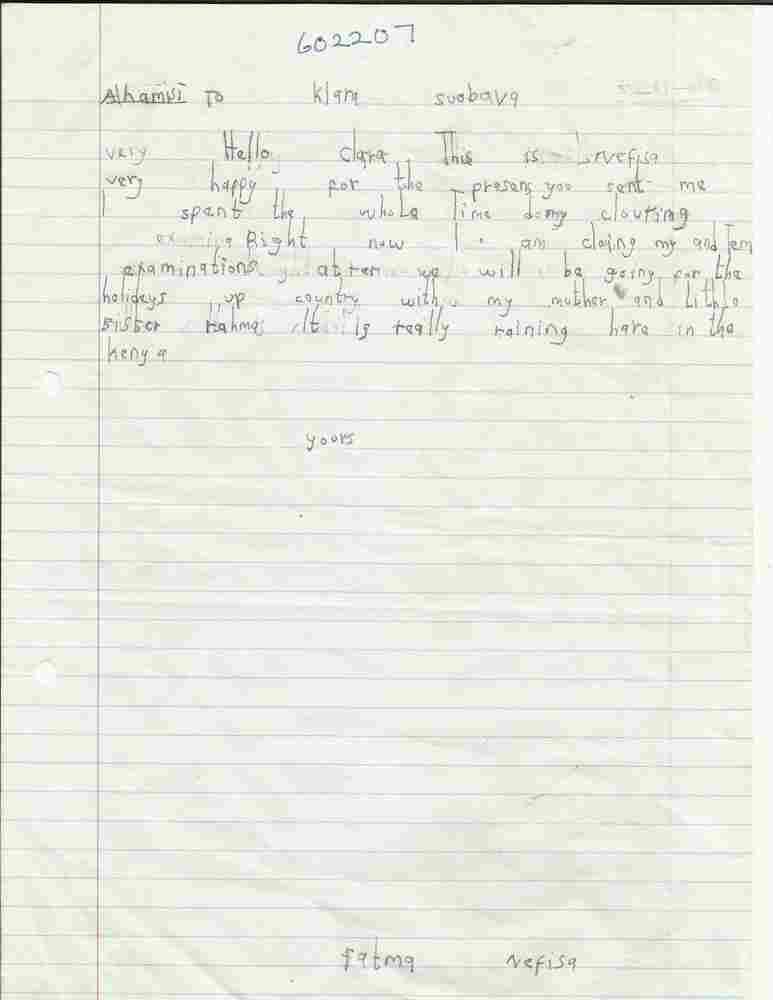 602207
To Klara svobova
very Hello clara This is Nefisa
very happy for the presens you sent me
I spent the whole Time doing
Right now I am doing my and Tem
examinations after we will be going for the
holideys up country with my mother and
sister Rahma It is really raining here in the
kenya
yours
fatma Nefisa